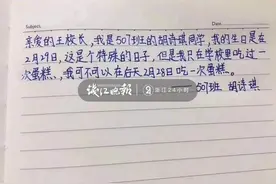 Subject. Date.
亲爱的王校长，我是507班的胡诗琪同学，我的生日是在
2月29日，这是个特殊的日子，但是我只在学校里吃过一
次蛋糕，我可不可以在后天2月28日吃一次蛋糕。
钱江晚报 浙江24小时
507班 胡诗琪